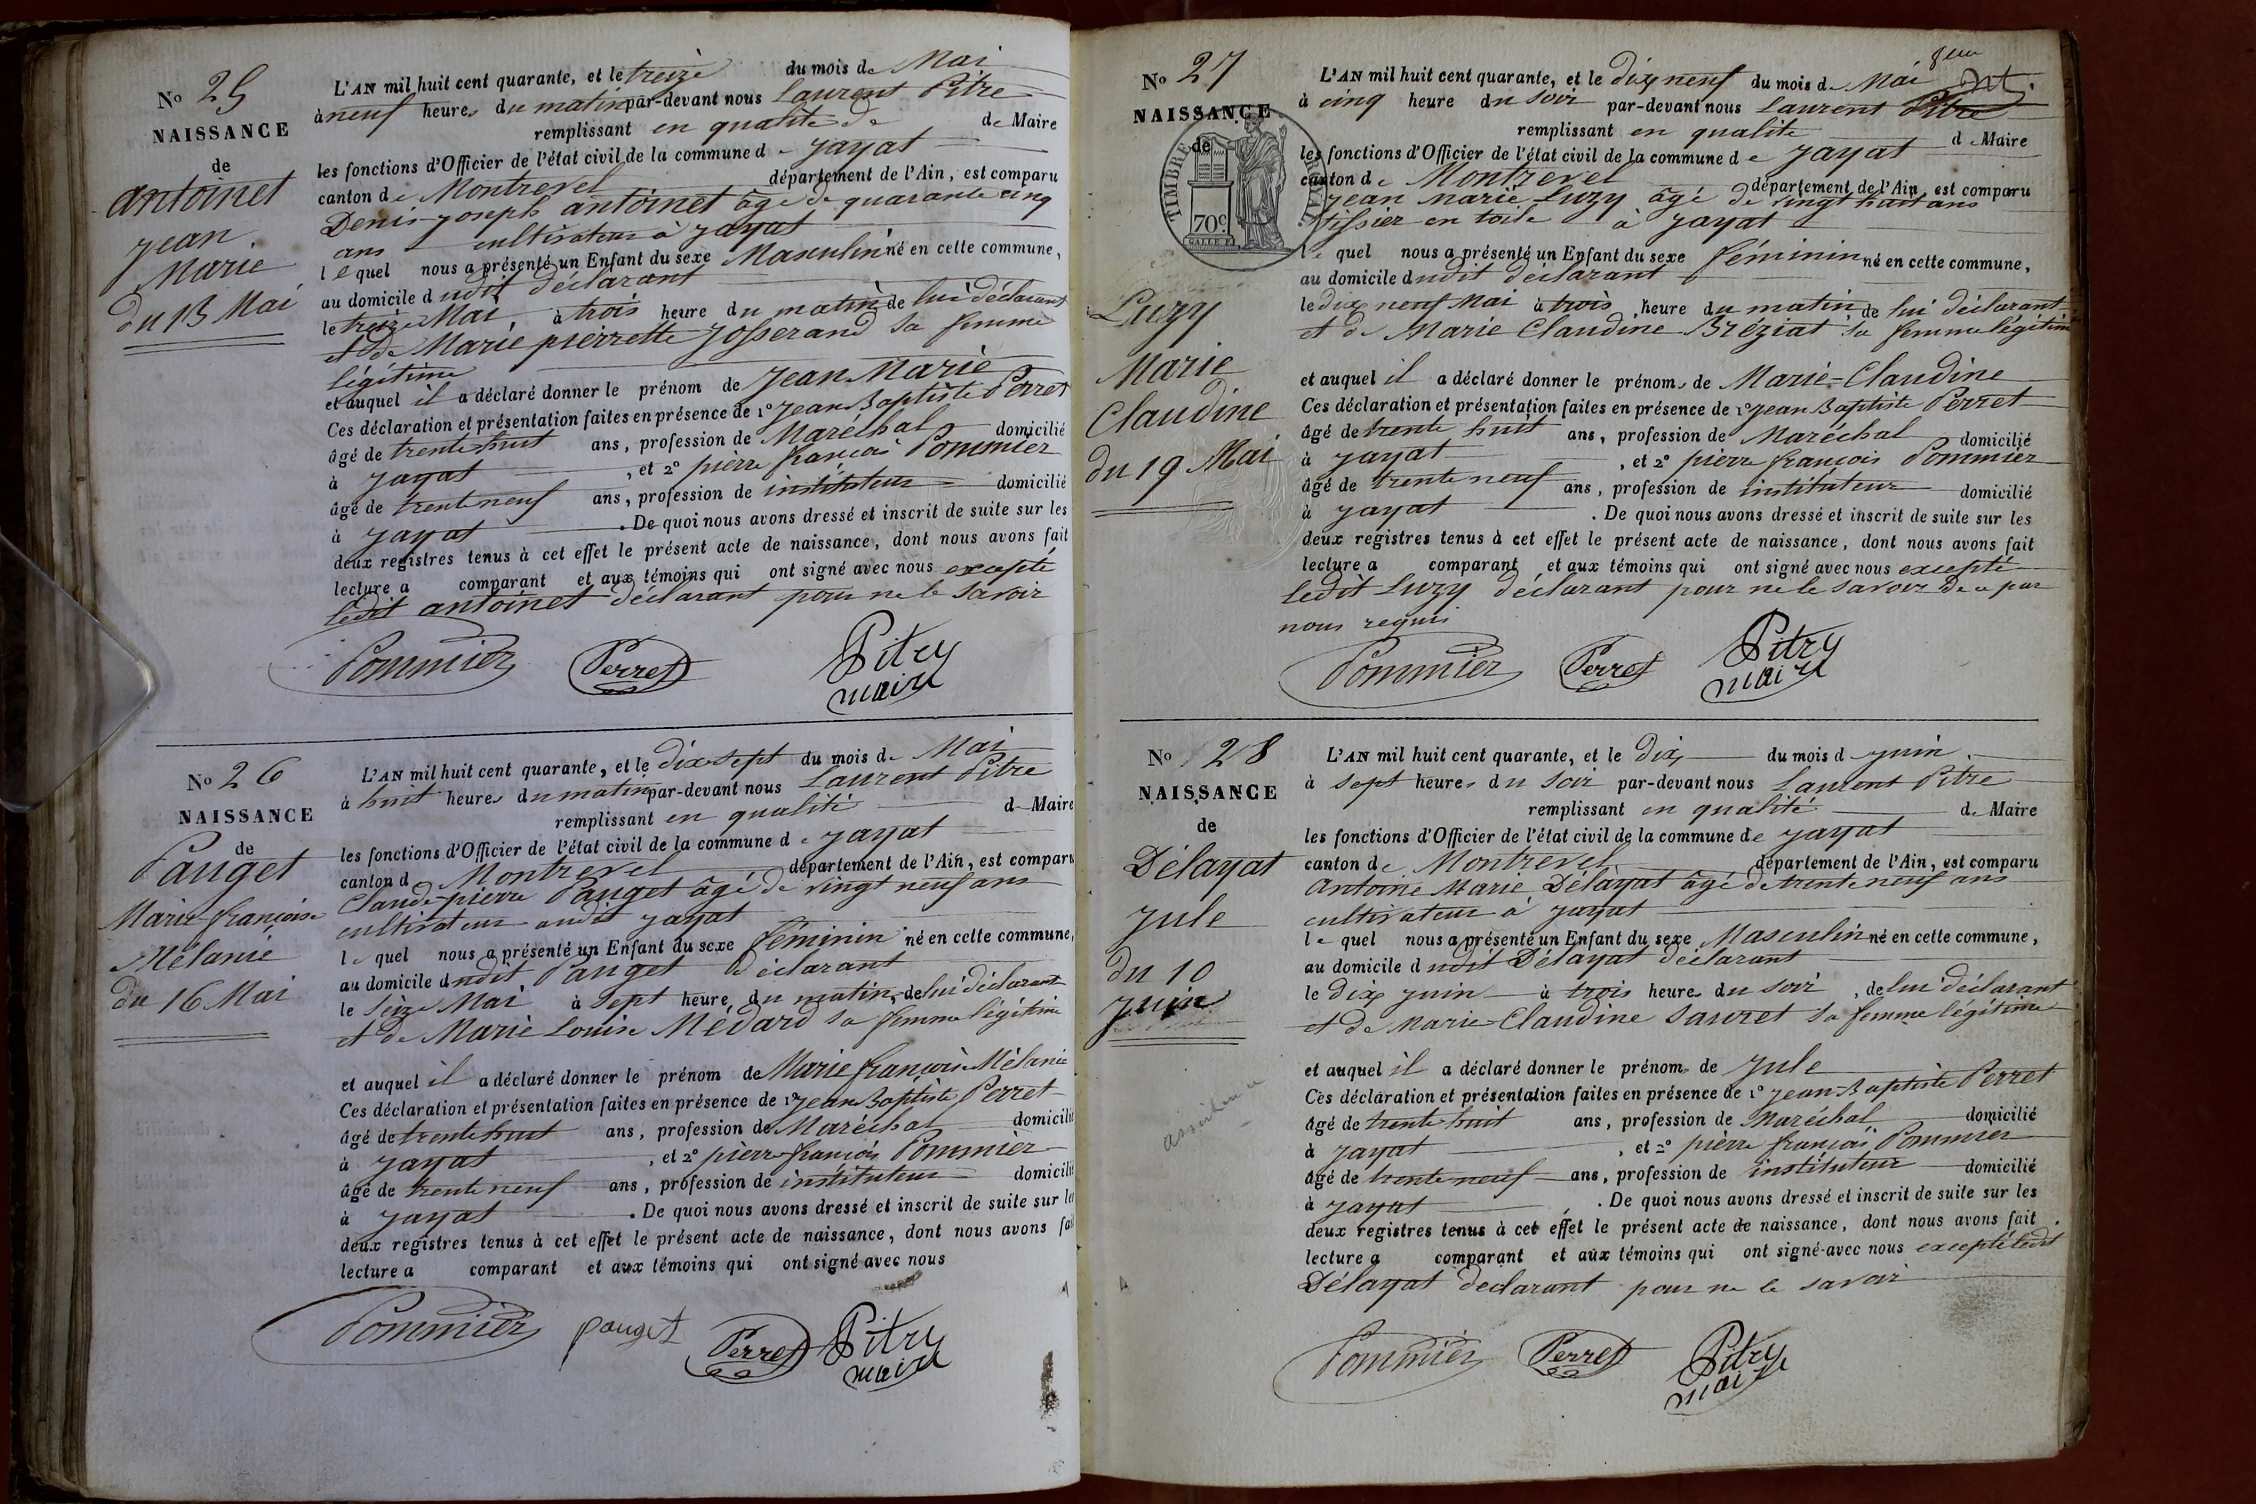 No 25
NAISSANCE
de
antoinet
jean
Marie
du 13 Mai
L'AN mil huit cent quarante, et le treize du mois de Mai
à neuf heures du matin par-devant nous Laurent Pitre
remplissant en qualité de de Maire
les fonctions d'Officier de l'état civil de la commune de jayat
canton de Montrevel département de l'Ain, est comparu
Denis joseph antoinet âgé de quarante cinq
ans cultivateur à jayat
lequel nous a présenté un Enfant du sexe Masculin né en cette commune,
au domicile dudit déclarant
le treize Mai à trois heure du matin de lui déclarant
et de Marie pierrette josserand sa femme
légitime
et auquel il a déclaré donner le prénom de jean Marie
Ces déclaration et présentation faites en présence de 1º jean Baptiste Perret
âgé de trente huit ans, profession de Maréchal domicilié
à jayat , et 2º pierre françois Pommier
âgé de trente neuf ans, profession de instituteur domicilié
à jayat . De quoi nous avons dressé et inscrit de suite sur les
deux registres tenus à cet effet le présent acte de naissance, dont nous avons fait
lecture a comparant et aux témoins qui ont signé avec nous excepté
ledit antoinet déclarant pour ne le savoir
Pommier Perret Pitre
maire
No 26
NAISSANCE
de
Pauget
Marie françoise
Mélanie
du 16 Mai
L'AN mil huit cent quarante, et le dix sept du mois de Mai
à huit heures du matin par-devant nous Laurent Pitre
remplissant en qualité de Maire
les fonctions d'Officier de l'état civil de la commune de jayat
canton d Montrevel département de l'Ain, est comparu
Claude pierre Pauget âgé de vingt neuf ans
cultivateur audit jayat
lequel nous a présenté un Enfant du sexe féminin né en cette commune,
au domicile dudit Pauget déclarant
le seize Mai à sept heure du matin, de lui déclarant
et de Marie Louise Médard sa femme légitime
et auquel il a déclaré donner le prénom de Marie françoise Mélanie
Ces déclaration et présentation faites en présence de 1º jean Baptiste Perret
âgé de trente huit ans, profession de Maréchal domicilié
à jayat , et 2º pierre françois Pommier
âgé de trente neuf ans, profession de instituteur domicilié
à jayat . De quoi nous avons dressé et inscrit de suite sur les
deux registres tenus à cet effet le présent acte de naissance, dont nous avons fait
lecture a comparant et aux témoins qui ont signé avec nous
Pommier pauget Perret Pitre
maire
No 27
NAISSANCE
de
TIMBRE
70c
Luzy
Marie
Claudine
du 19 Mai
L'AN mil huit cent quarante, et le dix neuf du mois de Mai
à cinq heure du soir par-devant nous Laurent Pitre
remplissant en qualité de Maire
les fonctions d'Officier de l'état civil de la commune de jayat
canton de Montrevel département de l'Ain, est comparu
jean marie Luzy âgé de vingt huit ans
tissier en toile à jayat
lequel nous a présenté un Enfant du sexe féminin né en cette commune,
au domicile dudit déclarant
le dix neuf Mai à trois heure du matin, de lui déclarant
et de Marie Claudine Bréziat sa femme légitime
et auquel il a déclaré donner le prénoms de Marie-Claudine
Ces déclaration et présentation faites en présence de 1º jean Baptiste Perret
âgé de trente huit ans, profession de Maréchal domicilié
à jayat , et 2º pierre françois Pommier
âgé de trente neuf ans, profession de instituteur domicilié
à jayat . De quoi nous avons dressé et inscrit de suite sur les
deux registres tenus à cet effet le présent acte de naissance, dont nous avons fait
lecture a comparant et aux témoins qui ont signé avec nous excepté
ledit Luzy déclarant pour ne le savoir de ce par
nous requis
Pommier Perret Pitre
maire
No 28
NAISSANCE
de
Délayat
jule
du 10
juin
L'AN mil huit cent quarante, et le dix du mois d juin
à sept heures du soir par-devant nous Laurent Pitre
remplissant en qualité de Maire
les fonctions d'Officier de l'état civil de la commune de jayat
canton de Montrevel département de l'Ain, est comparu
Antoine Marie Délayat âgé de trente neuf ans
cultivateur à jayat
lequel nous a présenté un Enfant du sexe Masculin né en cette commune,
au domicile dudit Délayat déclarant
le dix juin à trois heures du soir, de lui déclarant
et de Marie-Claudine Sauvet sa femme légitime
et auquel il a déclaré donner le prénom de jule
Ces déclaration et présentation faites en présence de 1º jean-Baptiste Perret
âgé de trente huit ans, profession de Maréchal domicilié
à jayat , et 2º pierre françois Pommier
âgé de trente neuf ans, profession de instituteur domicilié
à jayat . De quoi nous avons dressé et inscrit de suite sur les
deux registres tenus à cet effet le présent acte de naissance, dont nous avons fait
lecture a comparant et aux témoins qui ont signé avec nous excepté ledit
Délayat declarant pour ne le savoir
Pommier Perret Pitre
maire